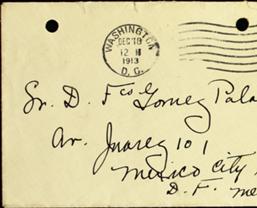 WASHINGTON
DEC 18
12 M
1913
D. C.
Sr. D. Fco Gomez Pala
Av. Juarez 101
Mexico City
D. F. Me